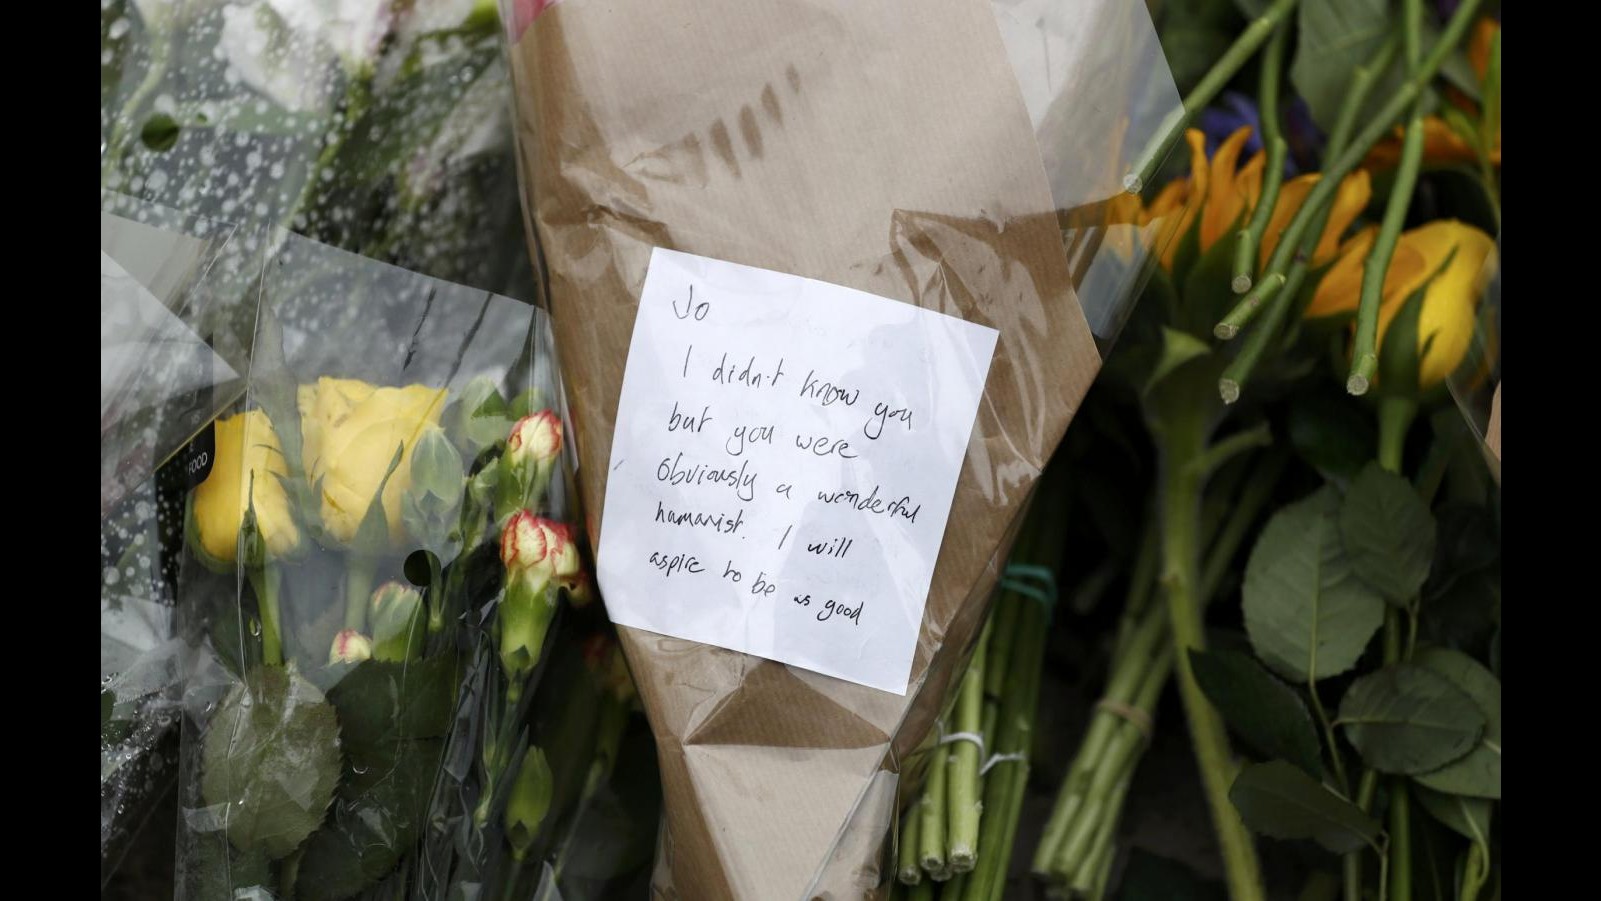 FOOD
Jo
I didn't know you
but you were
obviously a wonderful
humanist. I will
aspire to be as good